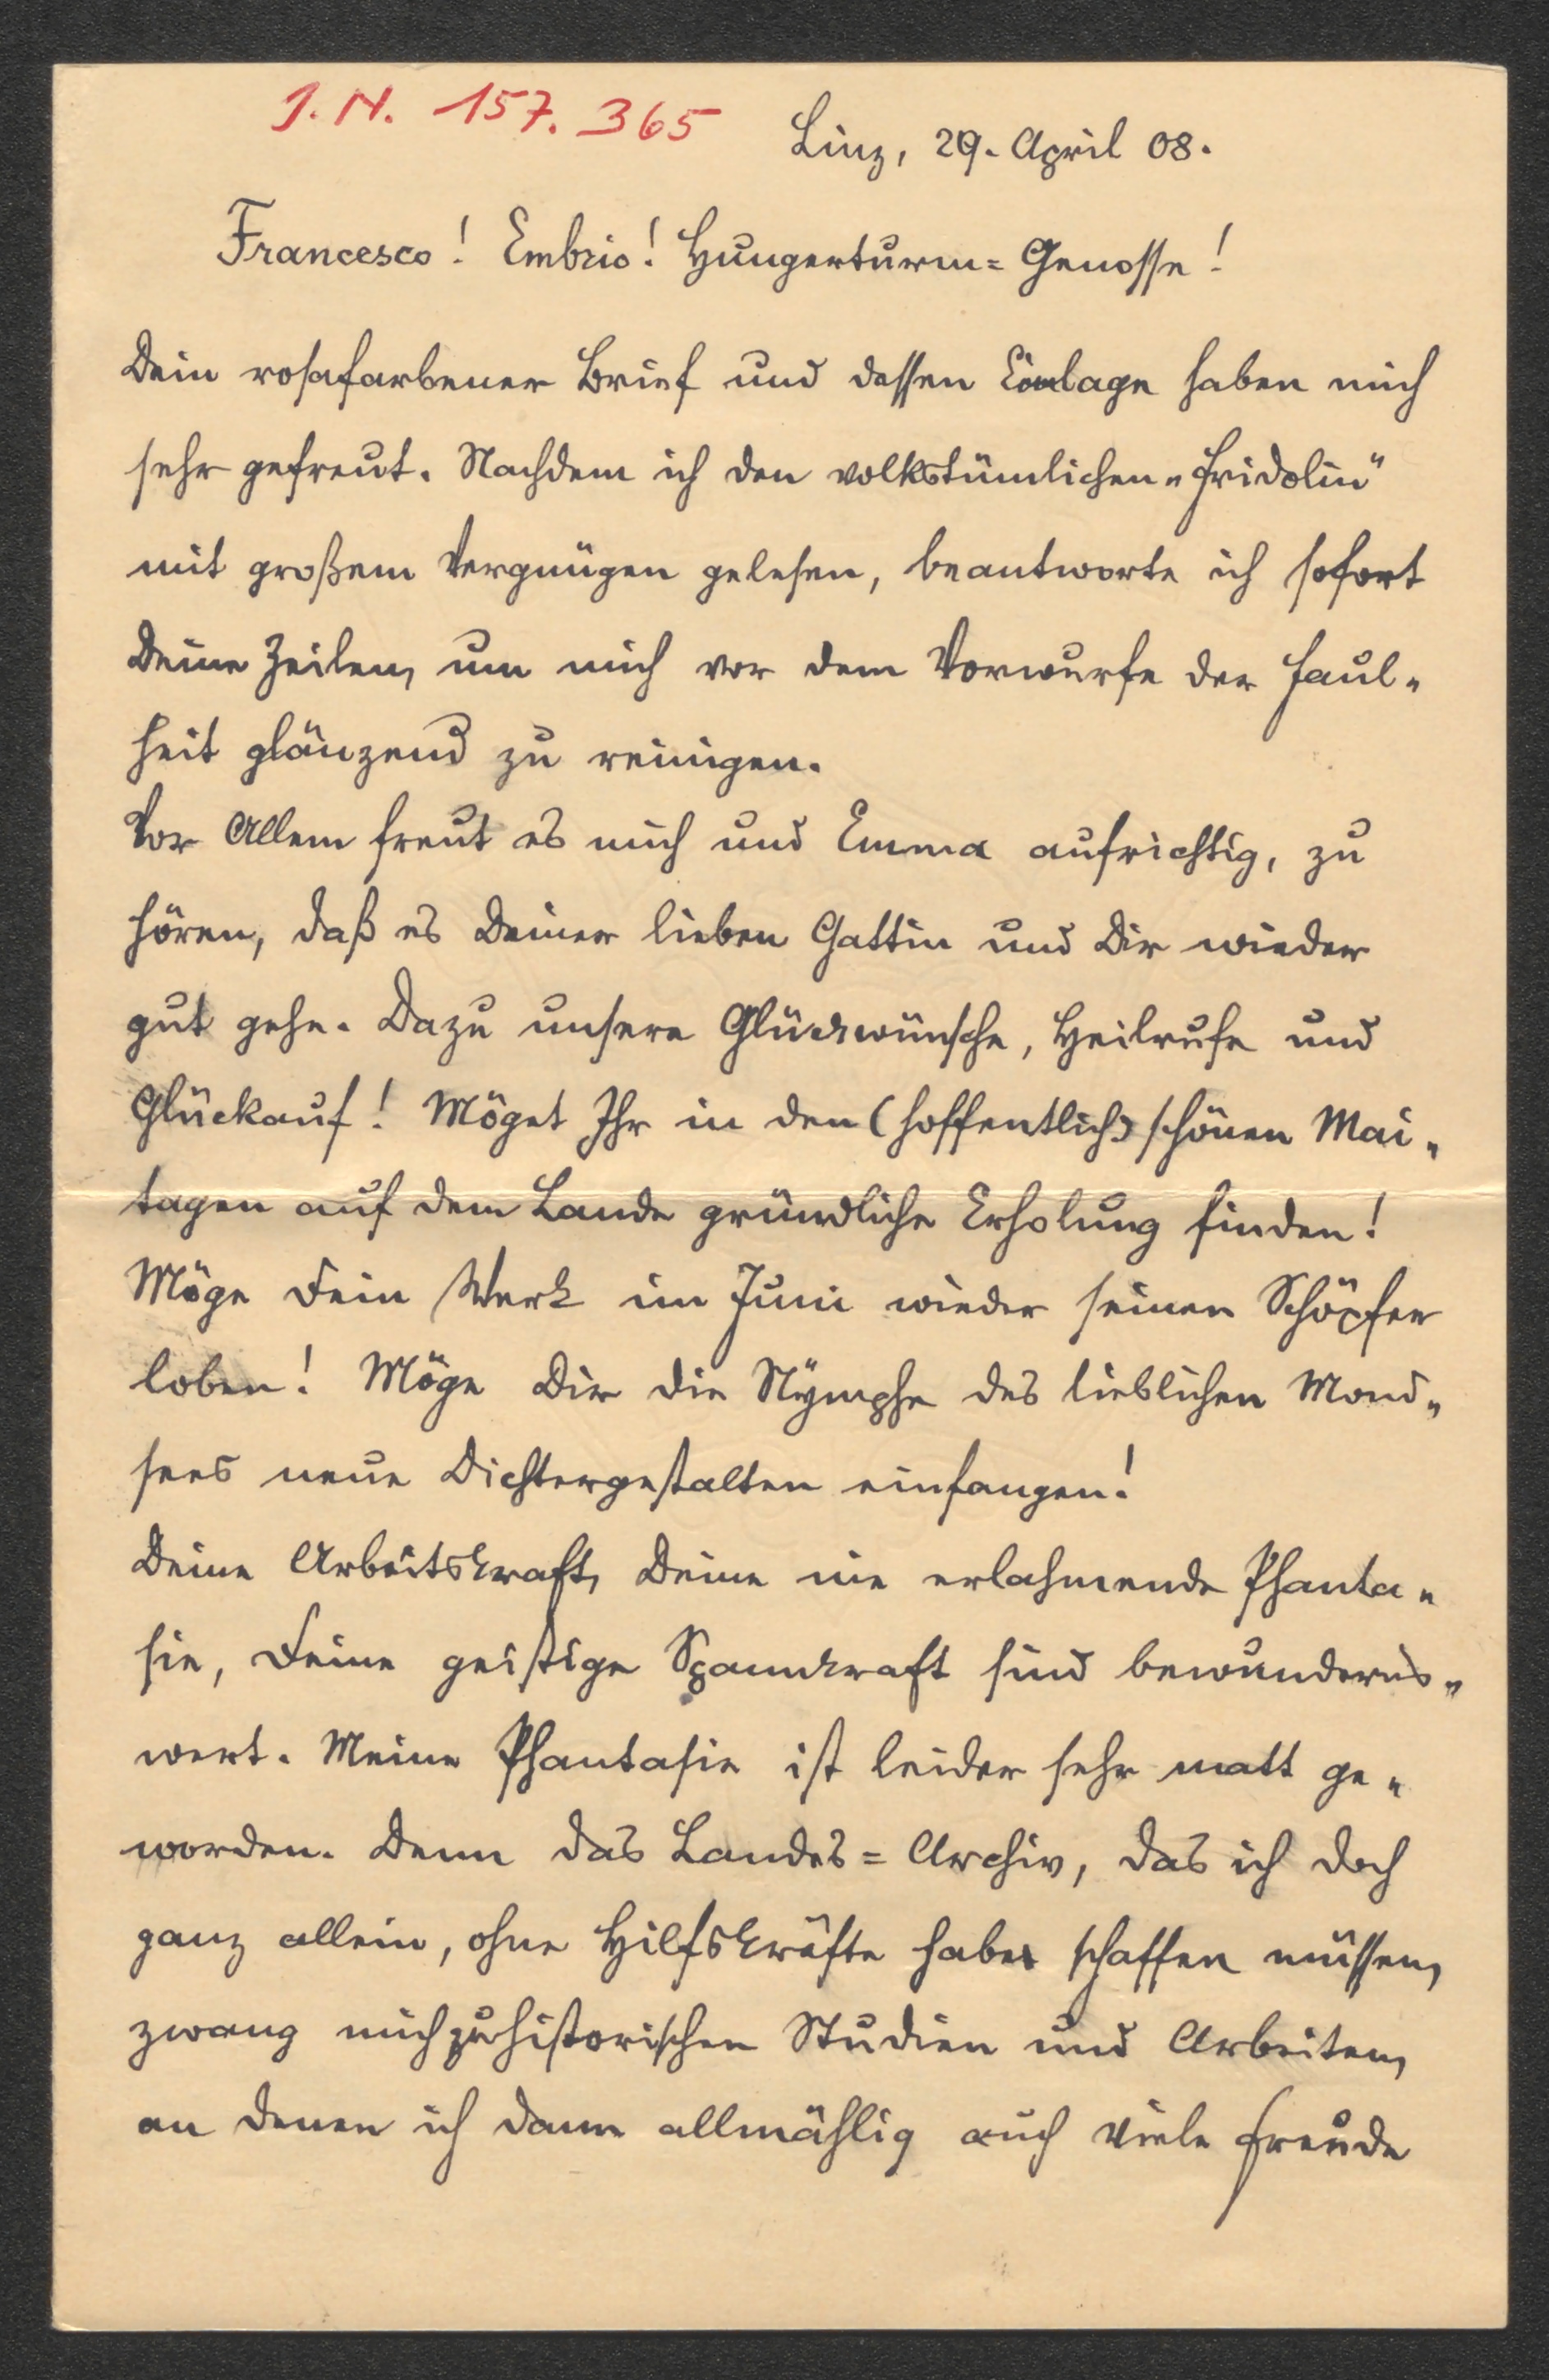 J. N. 157. 365
Linz, 29. April 08.
Francesco! Embrio! Hungerturm=Genosse!
Dein rosafarbener Brief und dessen Einlage haben mich
sehr gefreut. Nachdem ich den volkstümlichen „Fridolin“
mit großem Vergnügen gelesen, beantworte ich sofort
Deine Zeilen, um mich vor dem Vorwurfe der Faul„
heit glänzend zu reinigen.
Vor Allem freut es mich und Emma aufrichtig, zu
hören, daß es Deiner lieben Gattin und Dir wieder
gut gehe. Dazu unsere Glückwünsche, Heilrufe und
Glückauf! Möget Ihr in den (hoffentlich) schönen Mai„
tagen auf dem Lande gründliche Erholung finden!
Möge Dein Werk im Juni wieder seinen Schöpfer
loben! Möge Dir die Nymphe des lieblichen Mond„
sees neue Dichtergestalten einfangen!
Deine Arbeitskraft, Deine nie erlahmende Phanta„
sie, Deine geistige Spannkraft sind bewunderns„
wert. Meine Phantasie ist leider sehr matt ge„
worden. Denn das Landes=Archiv, das ich doch
ganz allein, ohne Hilfskräfte habe schaffen müssen,
zwang mich zu historischen Studien und Arbeiten,
an denen ich dann allmählig auch viele Freude